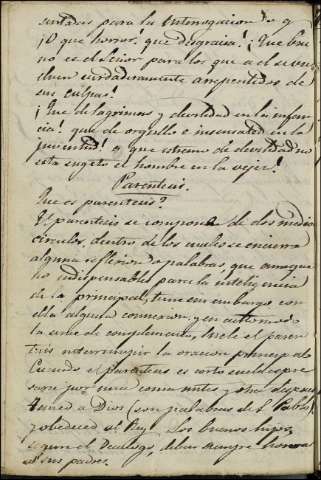 sentadas para la Interrogacion
¡O que horror! que desgracia! ¡Que bue
no es el Señor para los que a el se vuel
ven verdaderamente arrepentidos de
sus culpas!
¡Que de lagrimas y devilidad en la infan
cia! que de orgullo e insensatez en la
juventud! a que estremo de devilidad no
esta sugeto el hombre en la vejez!
Parentesis.
Que es parentesis?
El parentesis se compone de dos medios
circulos, dentro de los cuales se encierra
alguna reflexion o palabras, que aunque
no indispensables para la inteligencia
de la principal, tiene sin embargo con
ella alguna connexion y
la serie de complementos, suele el paren
tesis interrumpir la oracion principal.
Cuando el parentesis es corto suele expre
sarse por una coma antes y otra despues
Temed a Dios (son palabras de S. Pablo)
y obedeced al Rey. Los buenos hijos,
segun el Decalogo, deben siempre honrar
a sus padres.